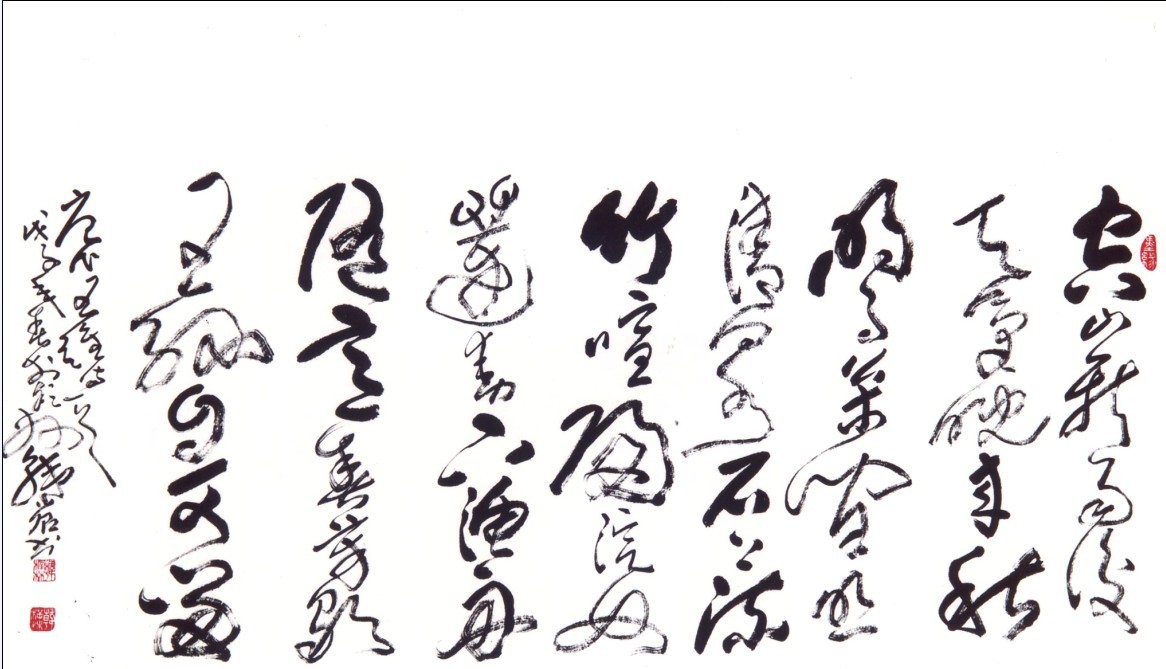 空山新雨後
天氣晚來秋
明月松間照
清泉石上流
竹喧歸浣女
蓮動下漁舟
隨意春芳歇
王孫自可留
唐代王維詩一首
戊子